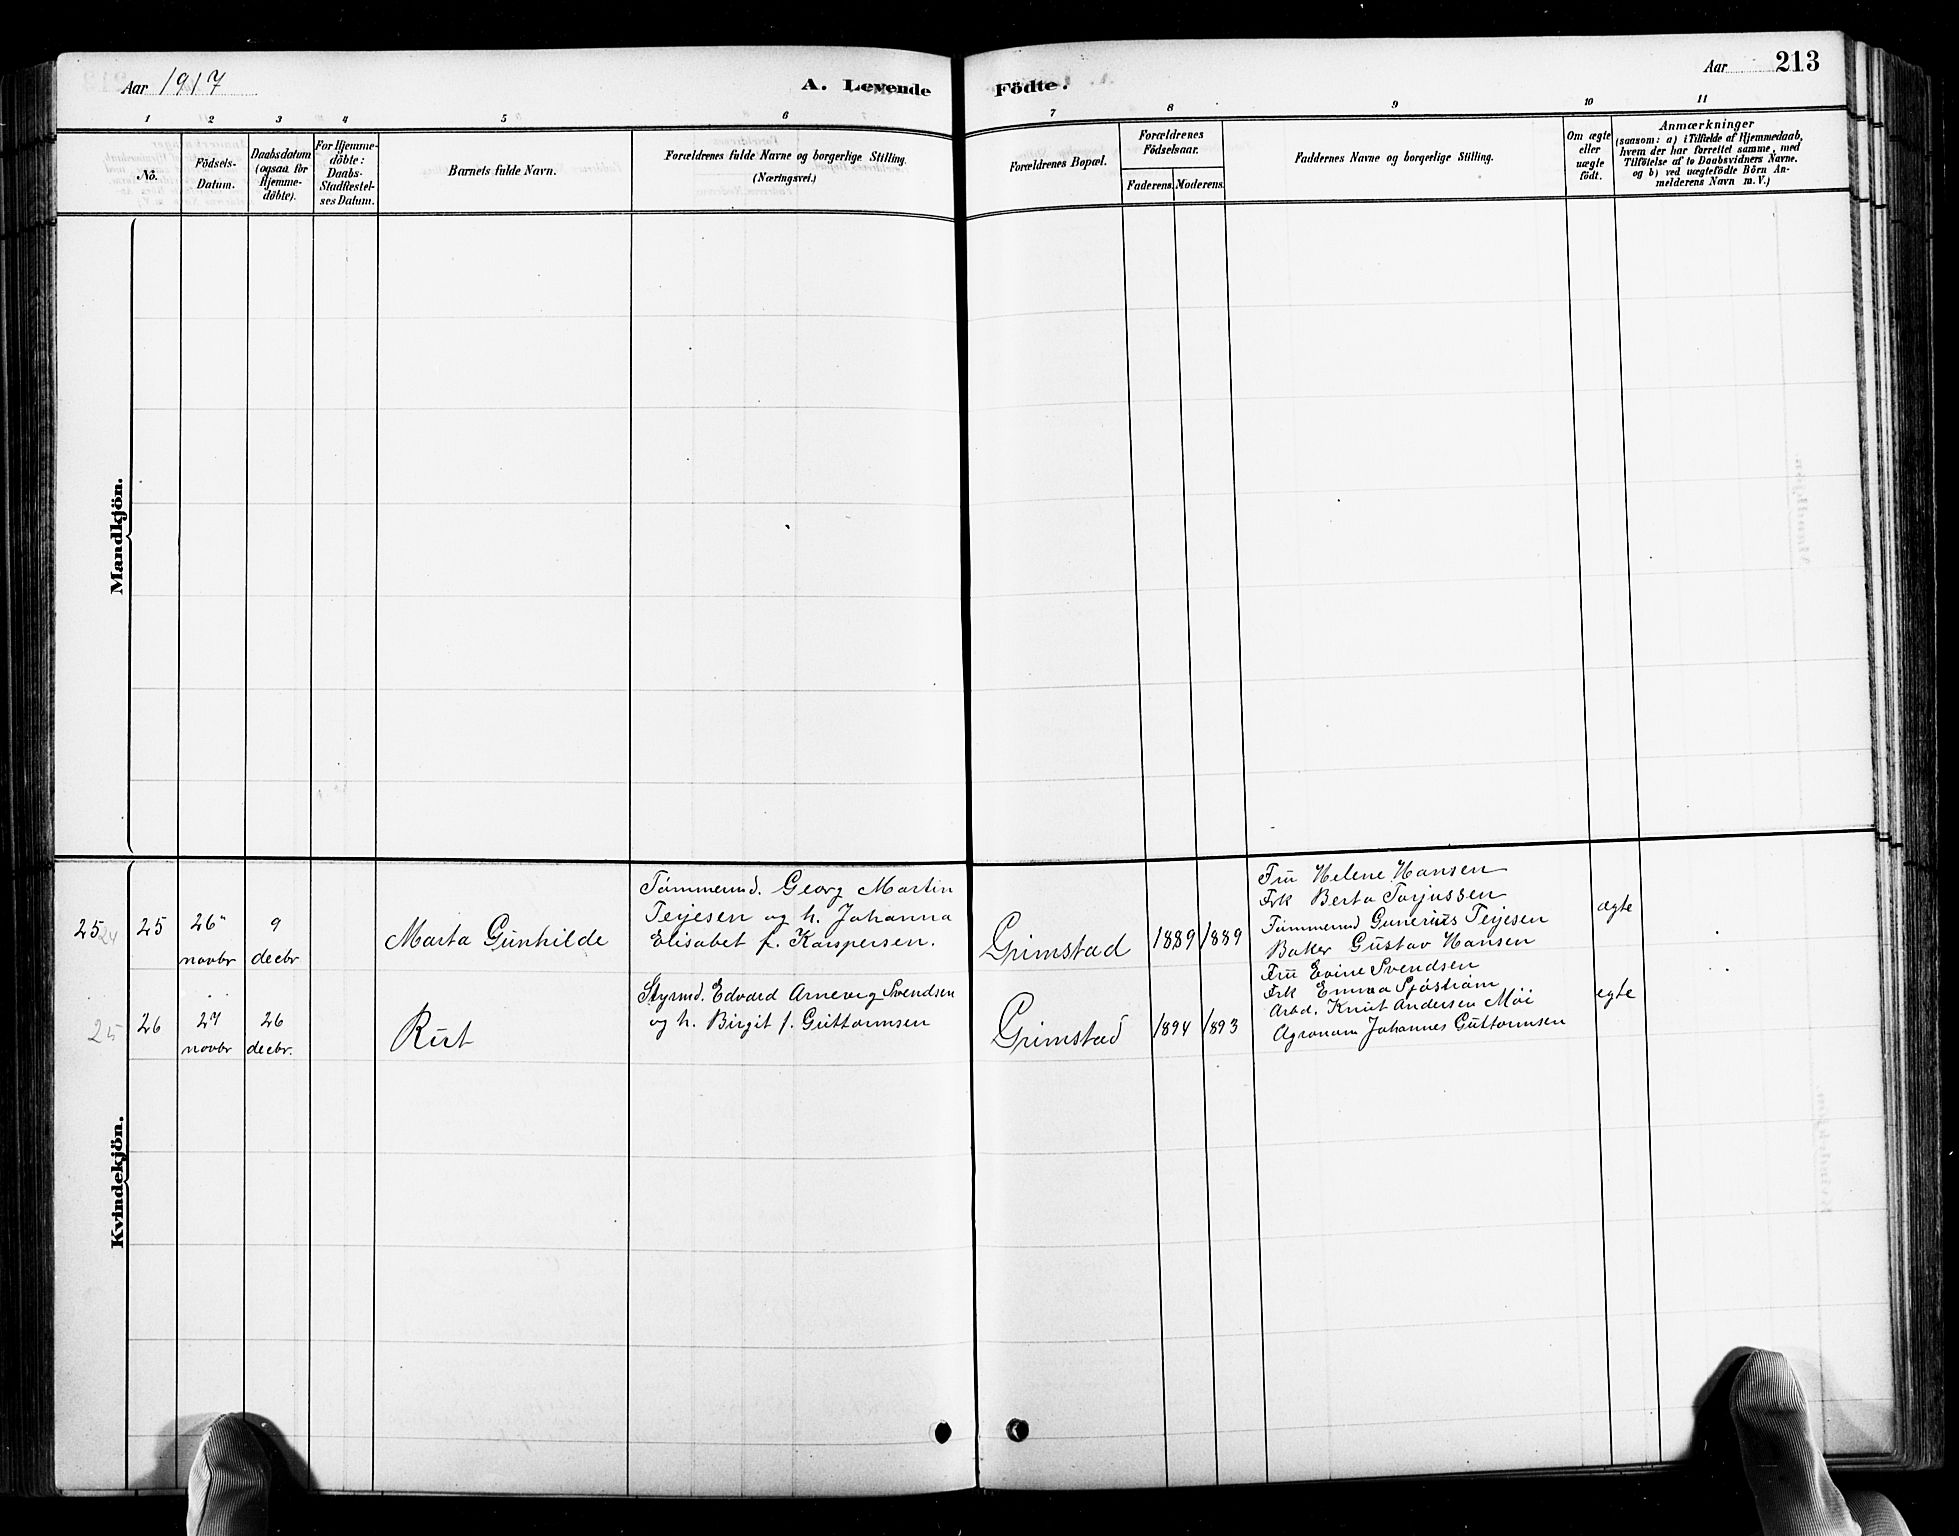 Aar 1917
A. Levende
Födte.
Aar
213
1 2 3 4 5 6
7 8 9 10 11
Nô.
Födsels-
Datum.
Daabsdatum
(ogsaa for
Hjemme-
döbte).
For Hjemme-
döbte:
Daabs-
Stadfæstel-
ses Datum.
Barnets fulde Navn.
Forældrenes fulde Navne og borgerlige Stilling.
(Næringsvei.)
Forældrenes Bopæl.
Forældrenes
Födselsaar.
Faderens.
Moderens.
Faddernes Navne og borgerlige Stilling.
Om ægte
eller
uægte
födt.
Anmærkninger
(saasom: a) i Tilfælde af Hjemmedaab,
hvem der har forrettet samme, med
Tilföielse af to Daabsvidners Navne.
og b) ved uægtefödte Börn An-
melderens Navn m. V.)
Mandkjön.
Kvindekjön.
25 24
25
26
novbr
9
decbr
Marta Gunhilde
Tømmermd. Georg Martin
Teijesen og h. Johanna
Elisabet f. Kaspersen.
Grimstad
1889
1889
Fru Helene Hansen
Frk Berta Torjussen
Tømmermd Gunerius Teijesen
Baker Gustav Hansen
ægte
25
26
27
novbr
26
decbr.
Rut
Styrmd. Edvard Arneveg Svendsen
og h. Birgit f. Guttormsen
Grimstad
1894
1893
Fru Evine Svendsen
Frk Emma Sjöström
Arbd. Knut Andersen Møi
Agronom Johannes Guttormsen
egte